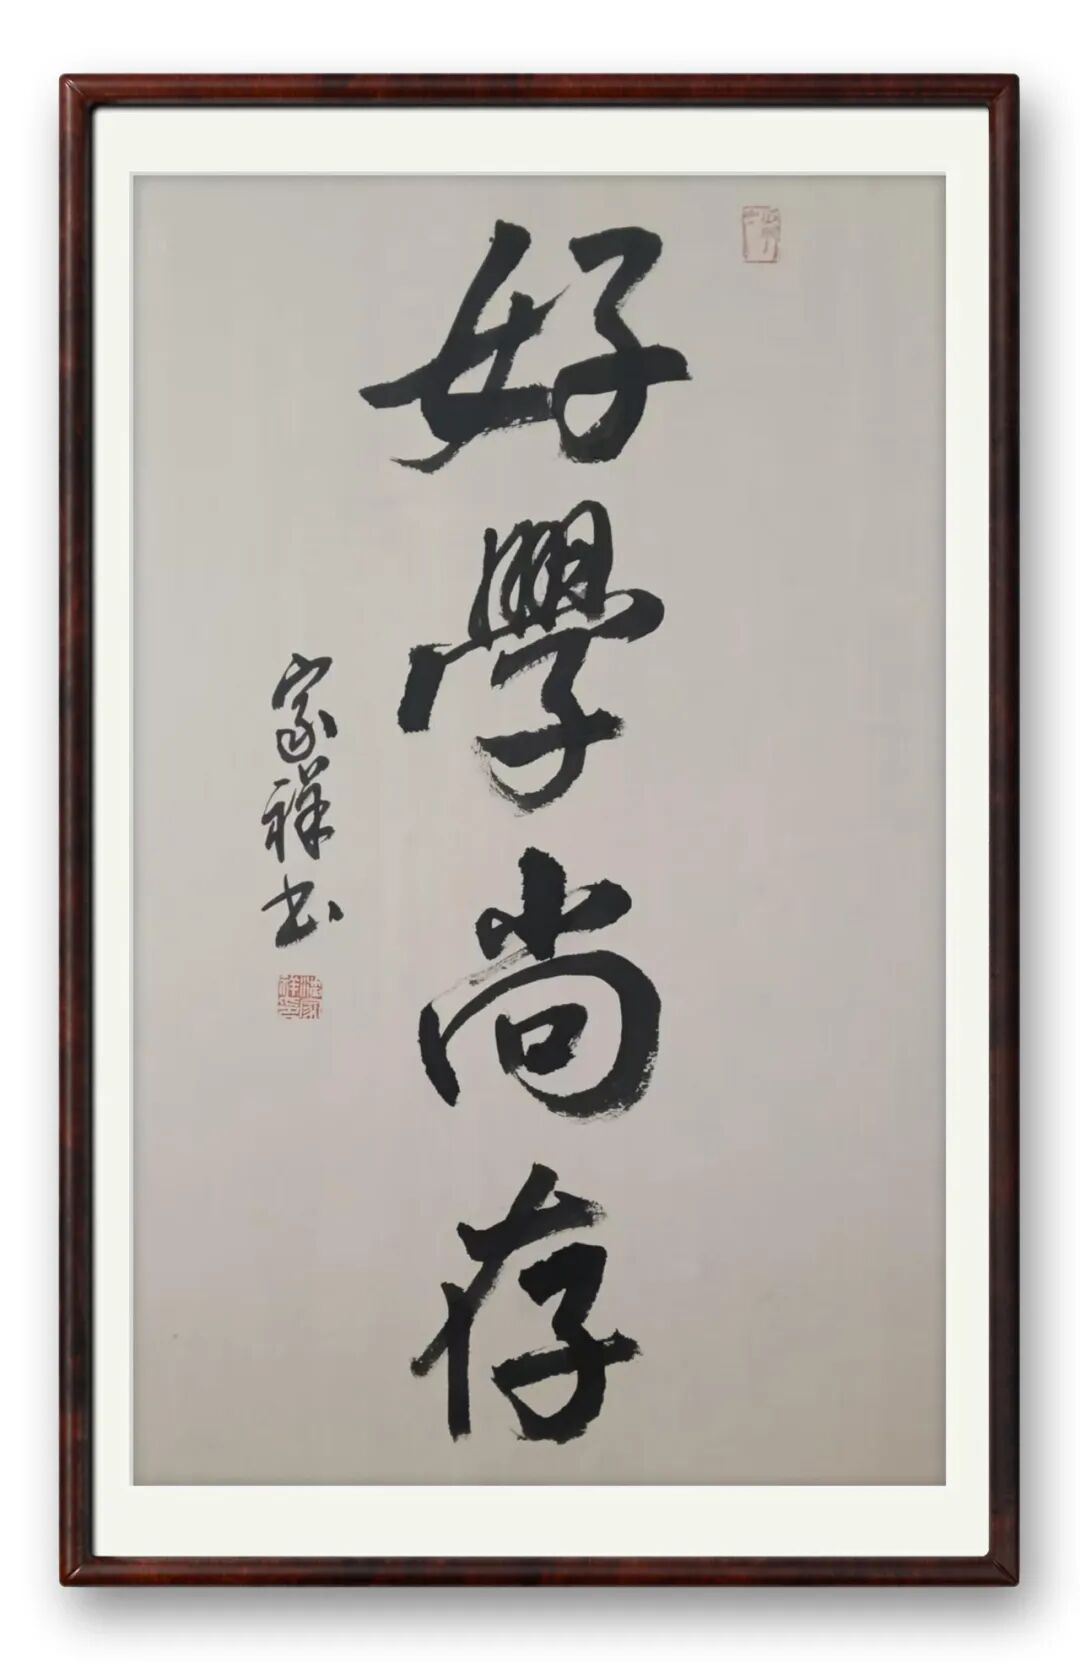 好學尚存
家祥书